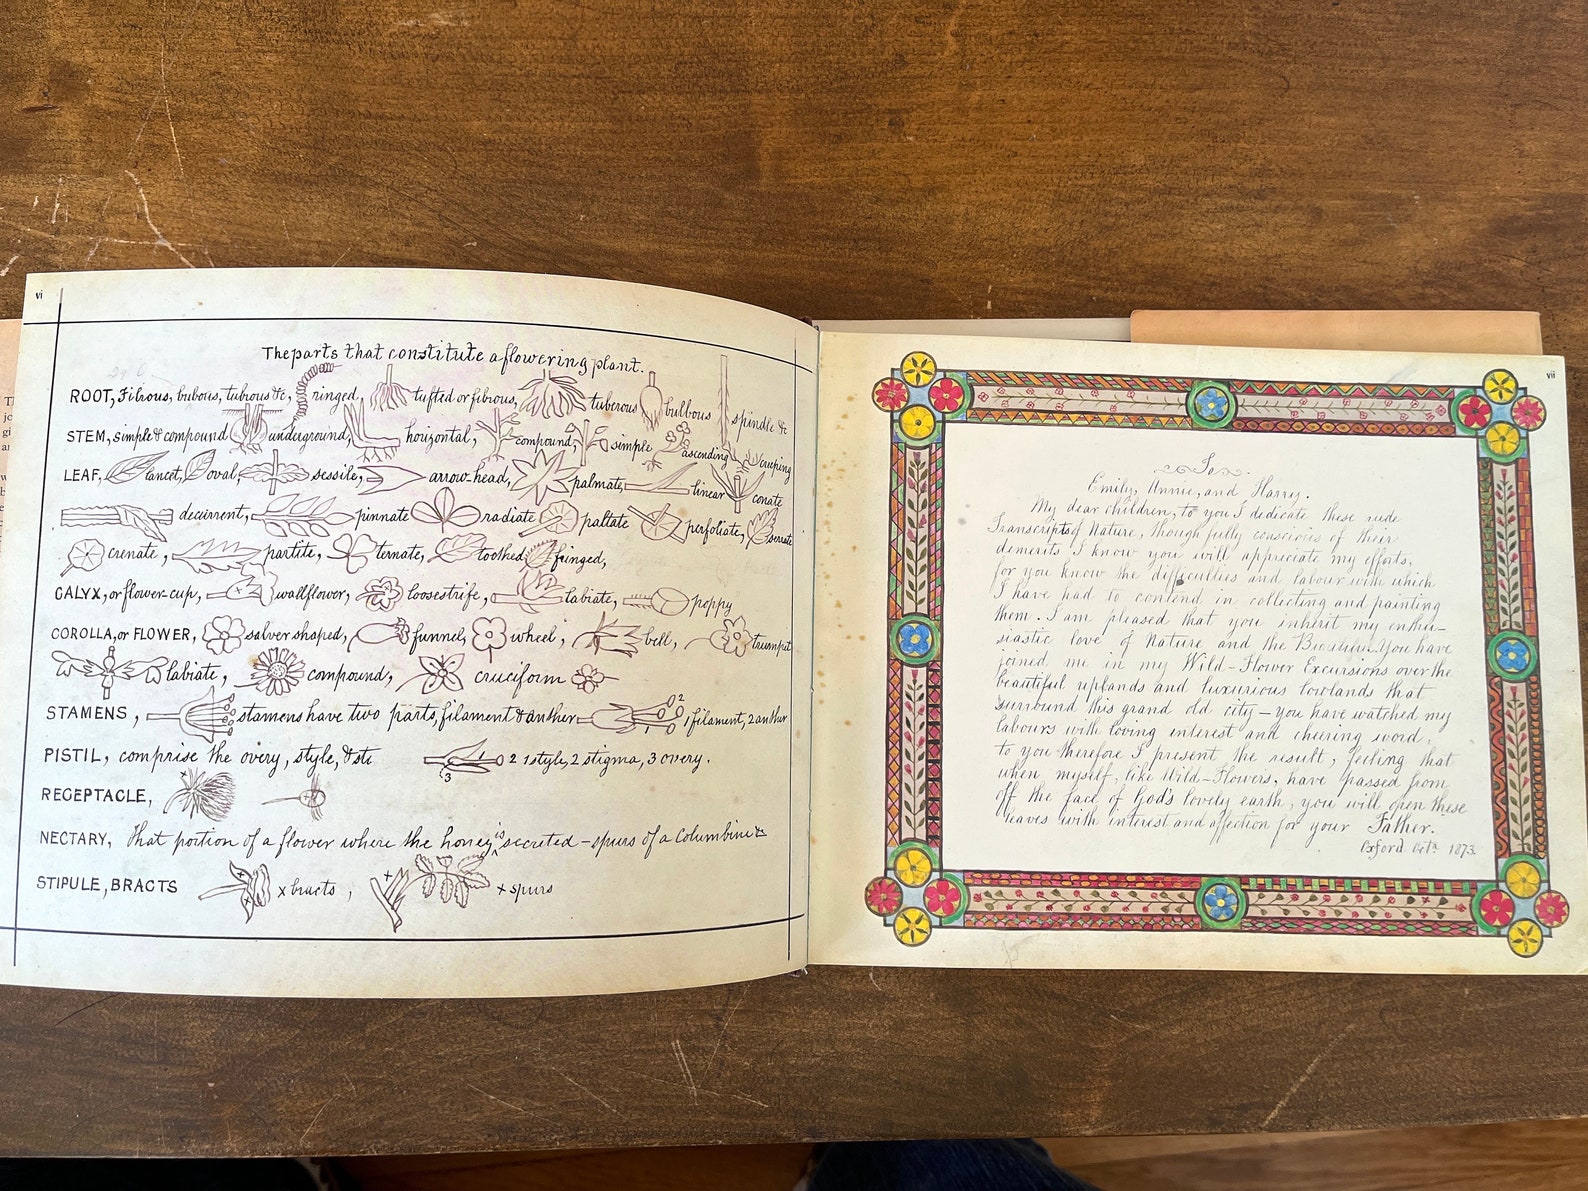 vi
The parts that constitute a flowering plant.
ROOT, Fibrous, bubous, tubrous &c, ringed, tufted or fibrous, tuberous bulbous spindle &c
STEM, simple & compound underground, horizontal, compound, simple ascending creeping
LEAF, lancet, oval, sessile, arrow-head, palmate, linear conate
decurrent, pinnate radiate paltate perfoliate, serrate
crenate, partite, ternate, toothed fringed,
CALYX, or flower-cup, wallflower, loosestrife, labiate, poppy
COROLLA, or FLOWER, salver shaped, funnel, wheel, bell, trumpet
labiate, compound, cruciform
STAMENS, stamens have two parts, filament & anther 2 1 filament, 2 anther
PISTIL, comprise the overy, style, & sti 3 2 1 style, 2 stigma, 3 overy.
RECEPTACLE,
NECTARY, That portion of a flower where the honey is secreted – spurs of a Columbine &
STIPULE, BRACTS x bracts, + spurs
vii
To
Emily, Annie, and Harry.
My dear children, to you I dedicate these rude
Transcripts of Nature, though fully conscious of their
demerits I know you will appreciate my efforts,
for you know the difficulties and labour with which
I have had to contend in collecting and painting
them. I am pleased that you inherit my enthu-
siastic love of Nature and the Beautiful. You have
joined me in my Wild-Flower Excursions over the
beautiful uplands and luxurious lowlands that
surround this grand old city – you have watched my
labours with loving interest and cheering word,
to you therefore I present the result, feeling that
when myself, like Wild-Flowers, have passed from
off the face of God's lovely earth, you will open these
leaves with interest and affection for your Father.
Oxford Octr. 1873.